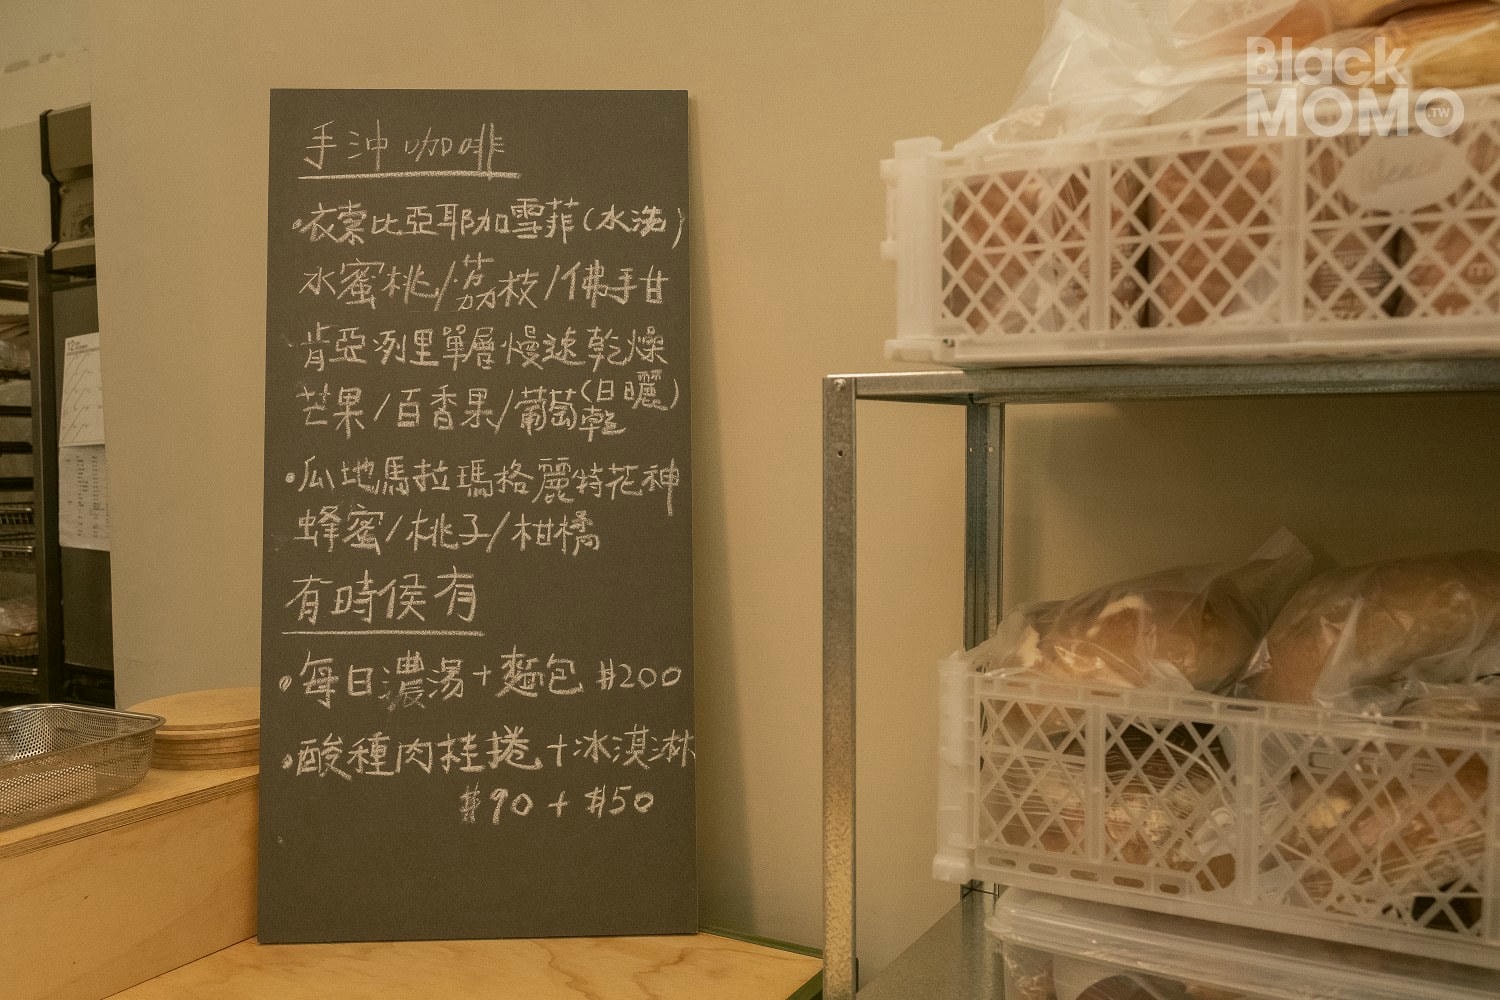 Black
MOMO.TW
手沖咖啡
•衣索比亞耶加雪菲(水洗)
水蜜桃/荔枝/佛手甘
肯亞冽里單層慢速乾燥
(日曬)
芒果/百香果/葡萄乾
•瓜地馬拉瑪格麗特花神
蜂蜜/桃子/柑橘
有時侯有
•每日濃湯+麵包 $200
•酸種肉桂捲+冰淇淋
$90 + $50